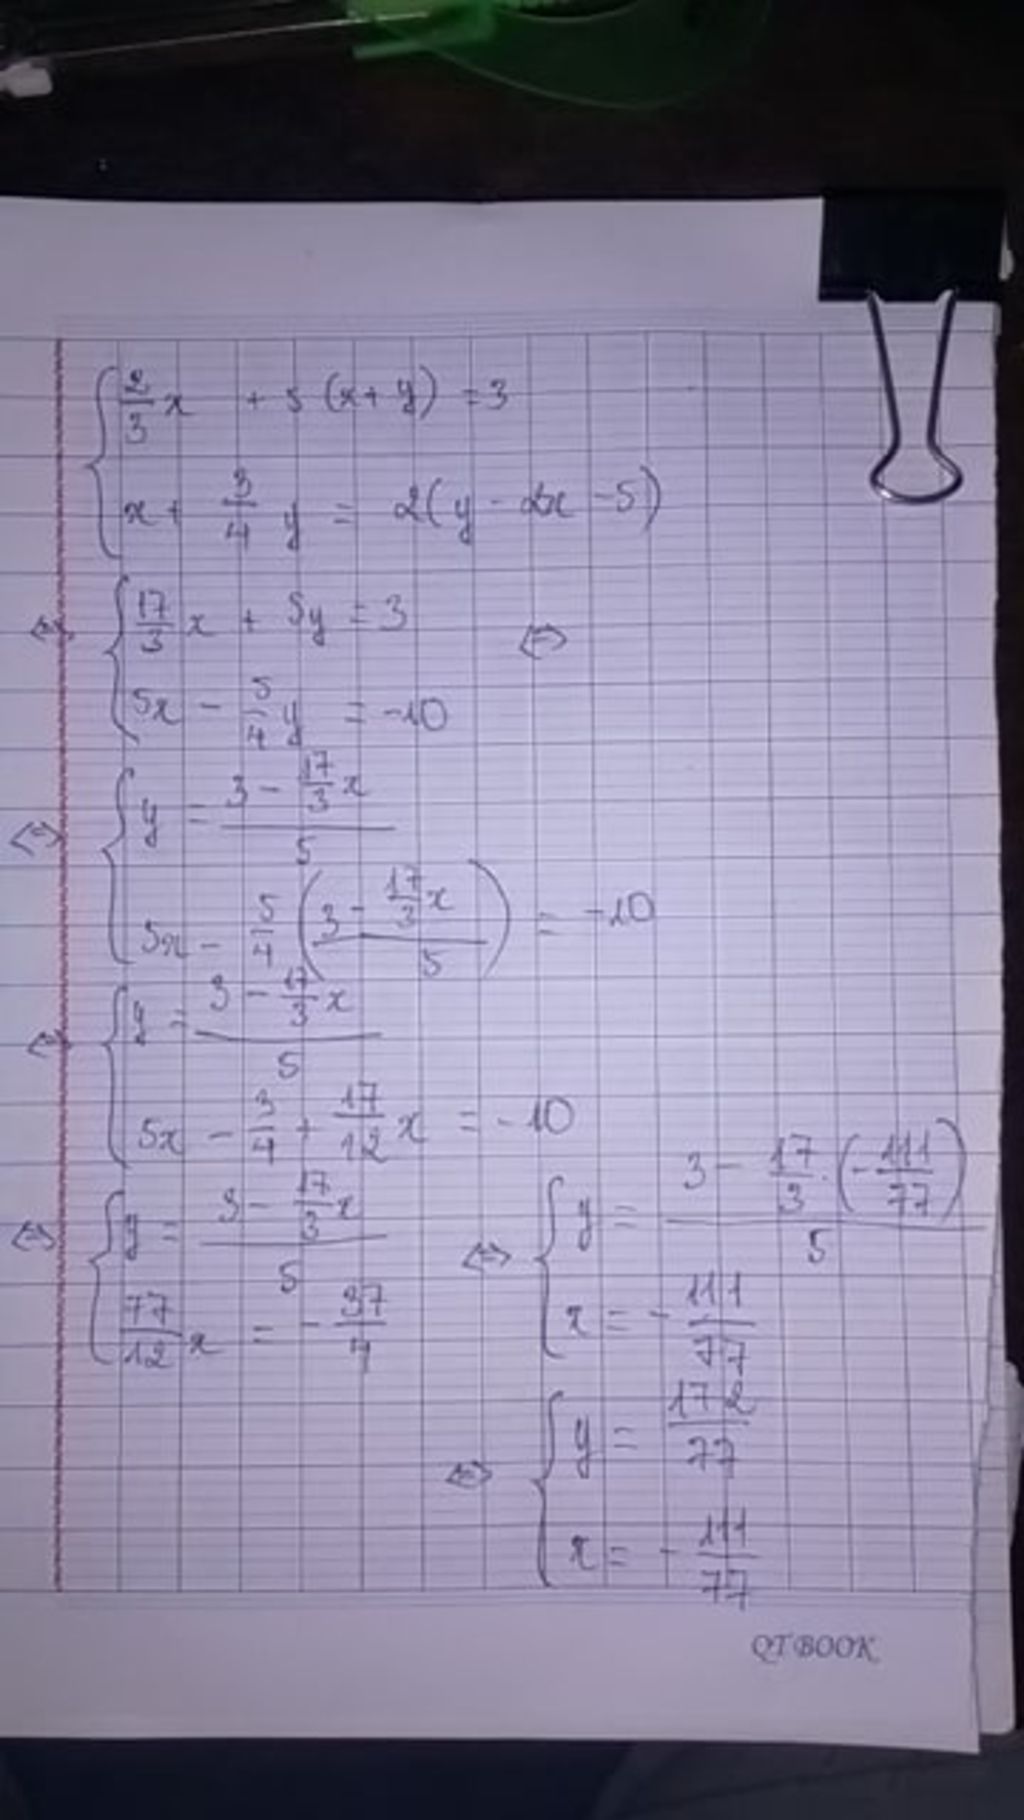 { 2/3 x + 5 (x + y) = 3
x + 3/4 y = 2(y - 2x - 5)
⇔ { 17/3 x + 5y = 3 ⇔
5x - 5/4 y = -10
⇔ { y = (3 - 17/3 x)/5
5x - 5/4 ((3 - 17/3 x)/5) = -10
⇔ { y = (3 - 17/3 x)/5
5x - 3/4 + 17/12 x = -10
⇔ { y = (3 - 17/3 x)/5
77/12 x = - 37/4
⇔ { y = (3 - 17/3 . (- 111/77))/5
x = - 111/77
⇔ { y = 172/77
x = - 111/77
QTBOOK